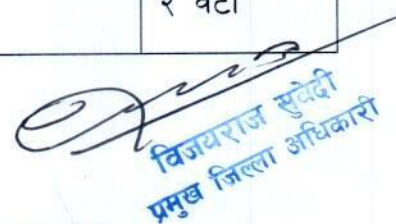 २ वटा
विजयराज सुवेदी
प्रमुख जिल्ला अधिकारी